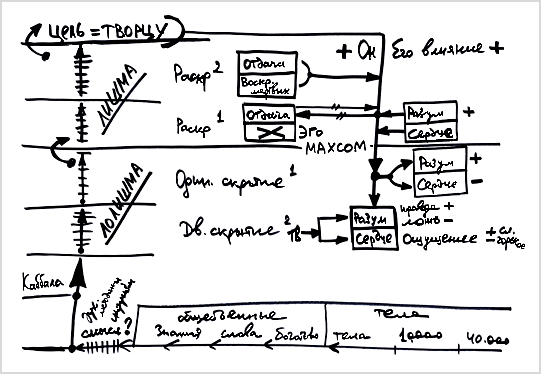 ЦЕЛЬ = ТВОРЦУ
+ Он
Его влияние +
Раскр 2
Отдачи
Воскр. мертвых
ЛИШМА
Раскр 1
Отдача
Эго
Разум +
Сердце
МАХСОМ
Разум +
Сердце −
ЛОЛИШМА
Один. скрытие 1
Дв. скрытие 2
Тв
Разум
Сердце
правда +
ложь −
Ощущение + сл.
− горькое
Каббала
смысл?
общественные
тела
Знания
слова
богатство
тела
10.000
40.000